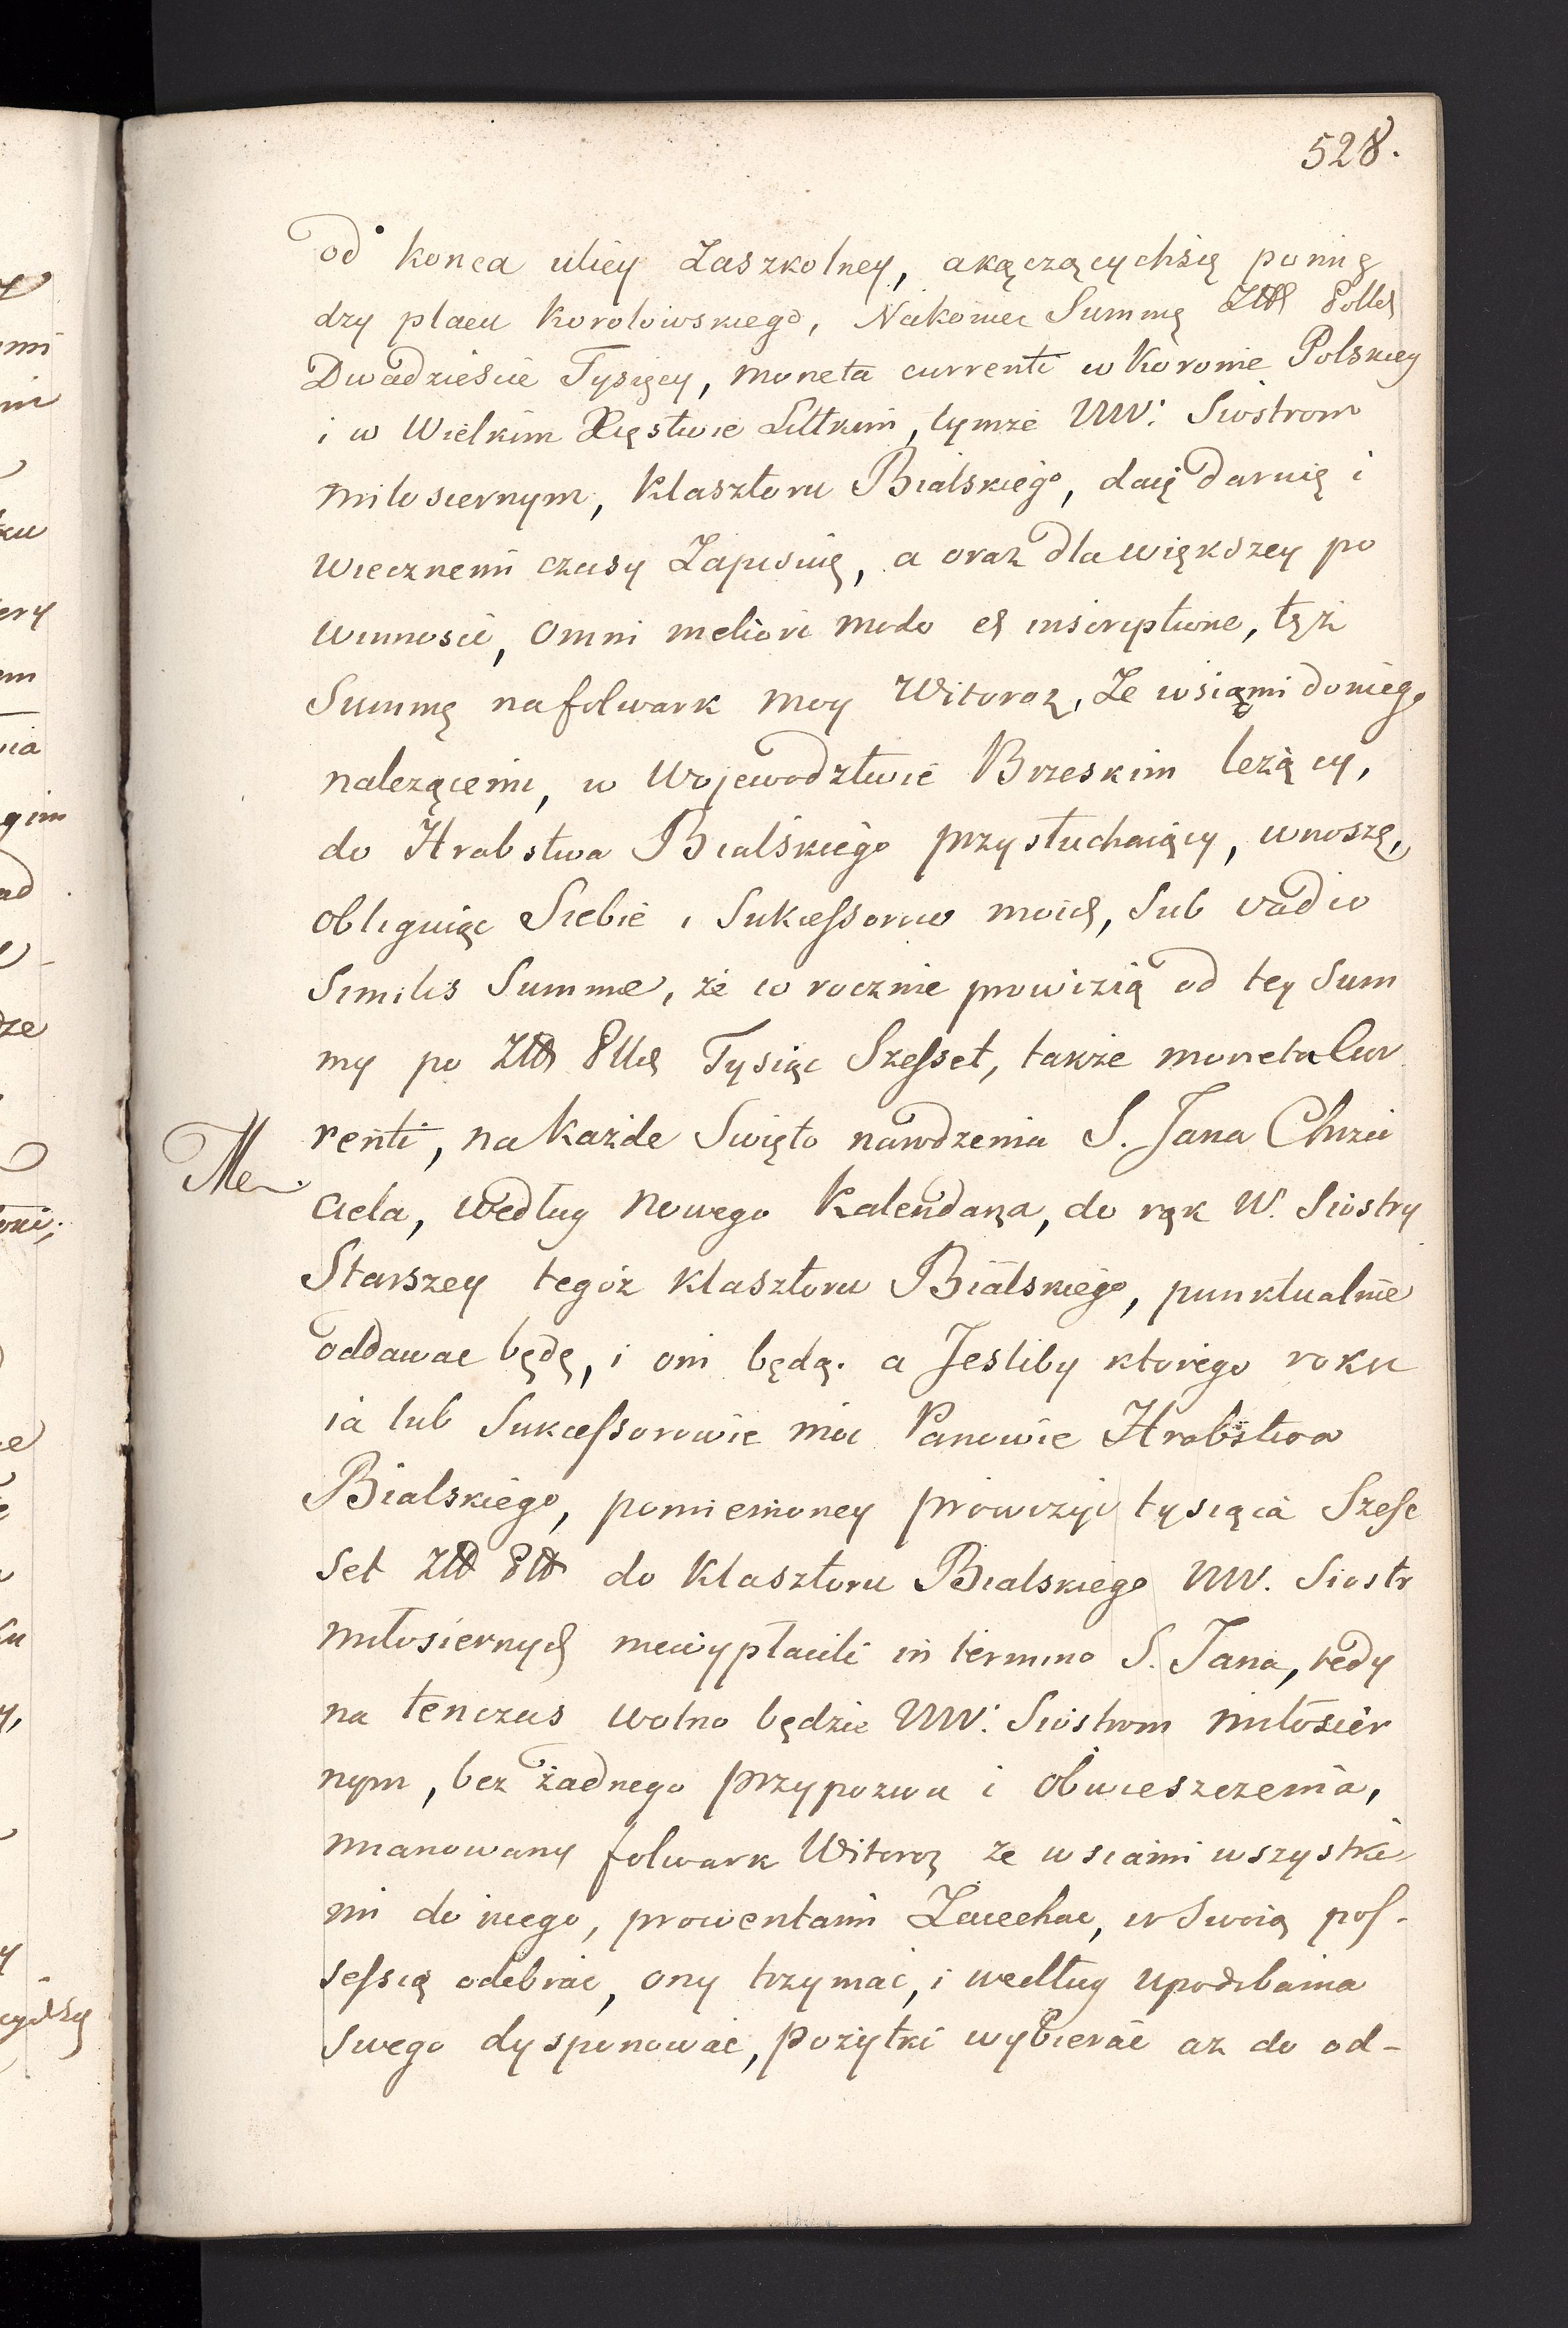 528.
od konca ulicy Zaszkolney, a kączących się pomię
dzy placu Korolowskiego, Nakoniec Summę Złłh Pollch
Dwadzieścia Tysięcy, moneta currenti w Koronie Polskiey
i w Wielkim Xięstwie Littkim, tymże WW. Siostrom
miłosiernym, Klasztoru Bialskiego, daię daruię i
wiecznemi czasy Zapisuię, a oraz dla większey po
winnosci, omni meliori modo et inscriptione, tęż
Summę na folwark moy Witoroż, Ze wsiami do niego
należącemi, w Wojewodztwie Brzeskim leżący,
do Hrabstwa Bialskiego przysłuchaiący, wnoszę,
obliguiąc Siebie i Sukcessorow moich, Sub vadio
Similis Summæ, że co rocznie prowizią od tey Sum
my po Złłh Pllch Tysiąc Szesset, także moneta Cur
renti, na każde Swięto narodzenia S. Jana Chrzci
ciela, według Nowego Kalendarza, do rąk W. Siostry
Starszey tegoż Klasztoru Bialskiego, punktualnie
oddawac będę, i oni będą. a Jesliby ktorego roku
ia lub Sukcessorowie moi Panowie Hrabstwa
Bialskiego, pomienioney prowizyi tysiąca Szesc
set Złł Płł do Klasztoru Bialskiego WW. Siostr
miłosiernych niewypłacili in termino S. Jana, tedy
na tenczas wolno będzie WW. Siostrom miłosier
nym, bez żadnego przypozwu i obwieszczenia,
mianowany folwark Witoroż ze wsiami wszystkie
mi do niego, prowentami Zaiechac, w Swoią pos-
sessią odebrac, ony trzymac, i według upodobania
swego dysponowac, pożytki wybierac aż do od-